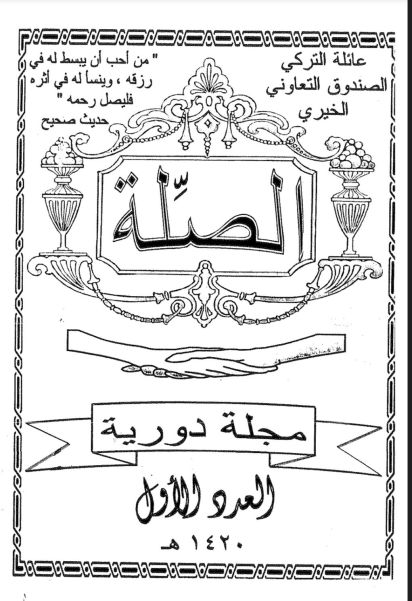 عائلة التركي
الصندوق التعاوني
الخيري
" من أحب أن يبسط له في
رزقه ، وينسأ له في أثره
فليصل رحمه "
حديث صحيح
الصِّلة
مجلة دورية
العدد الأول
١٤٢٠ هـ